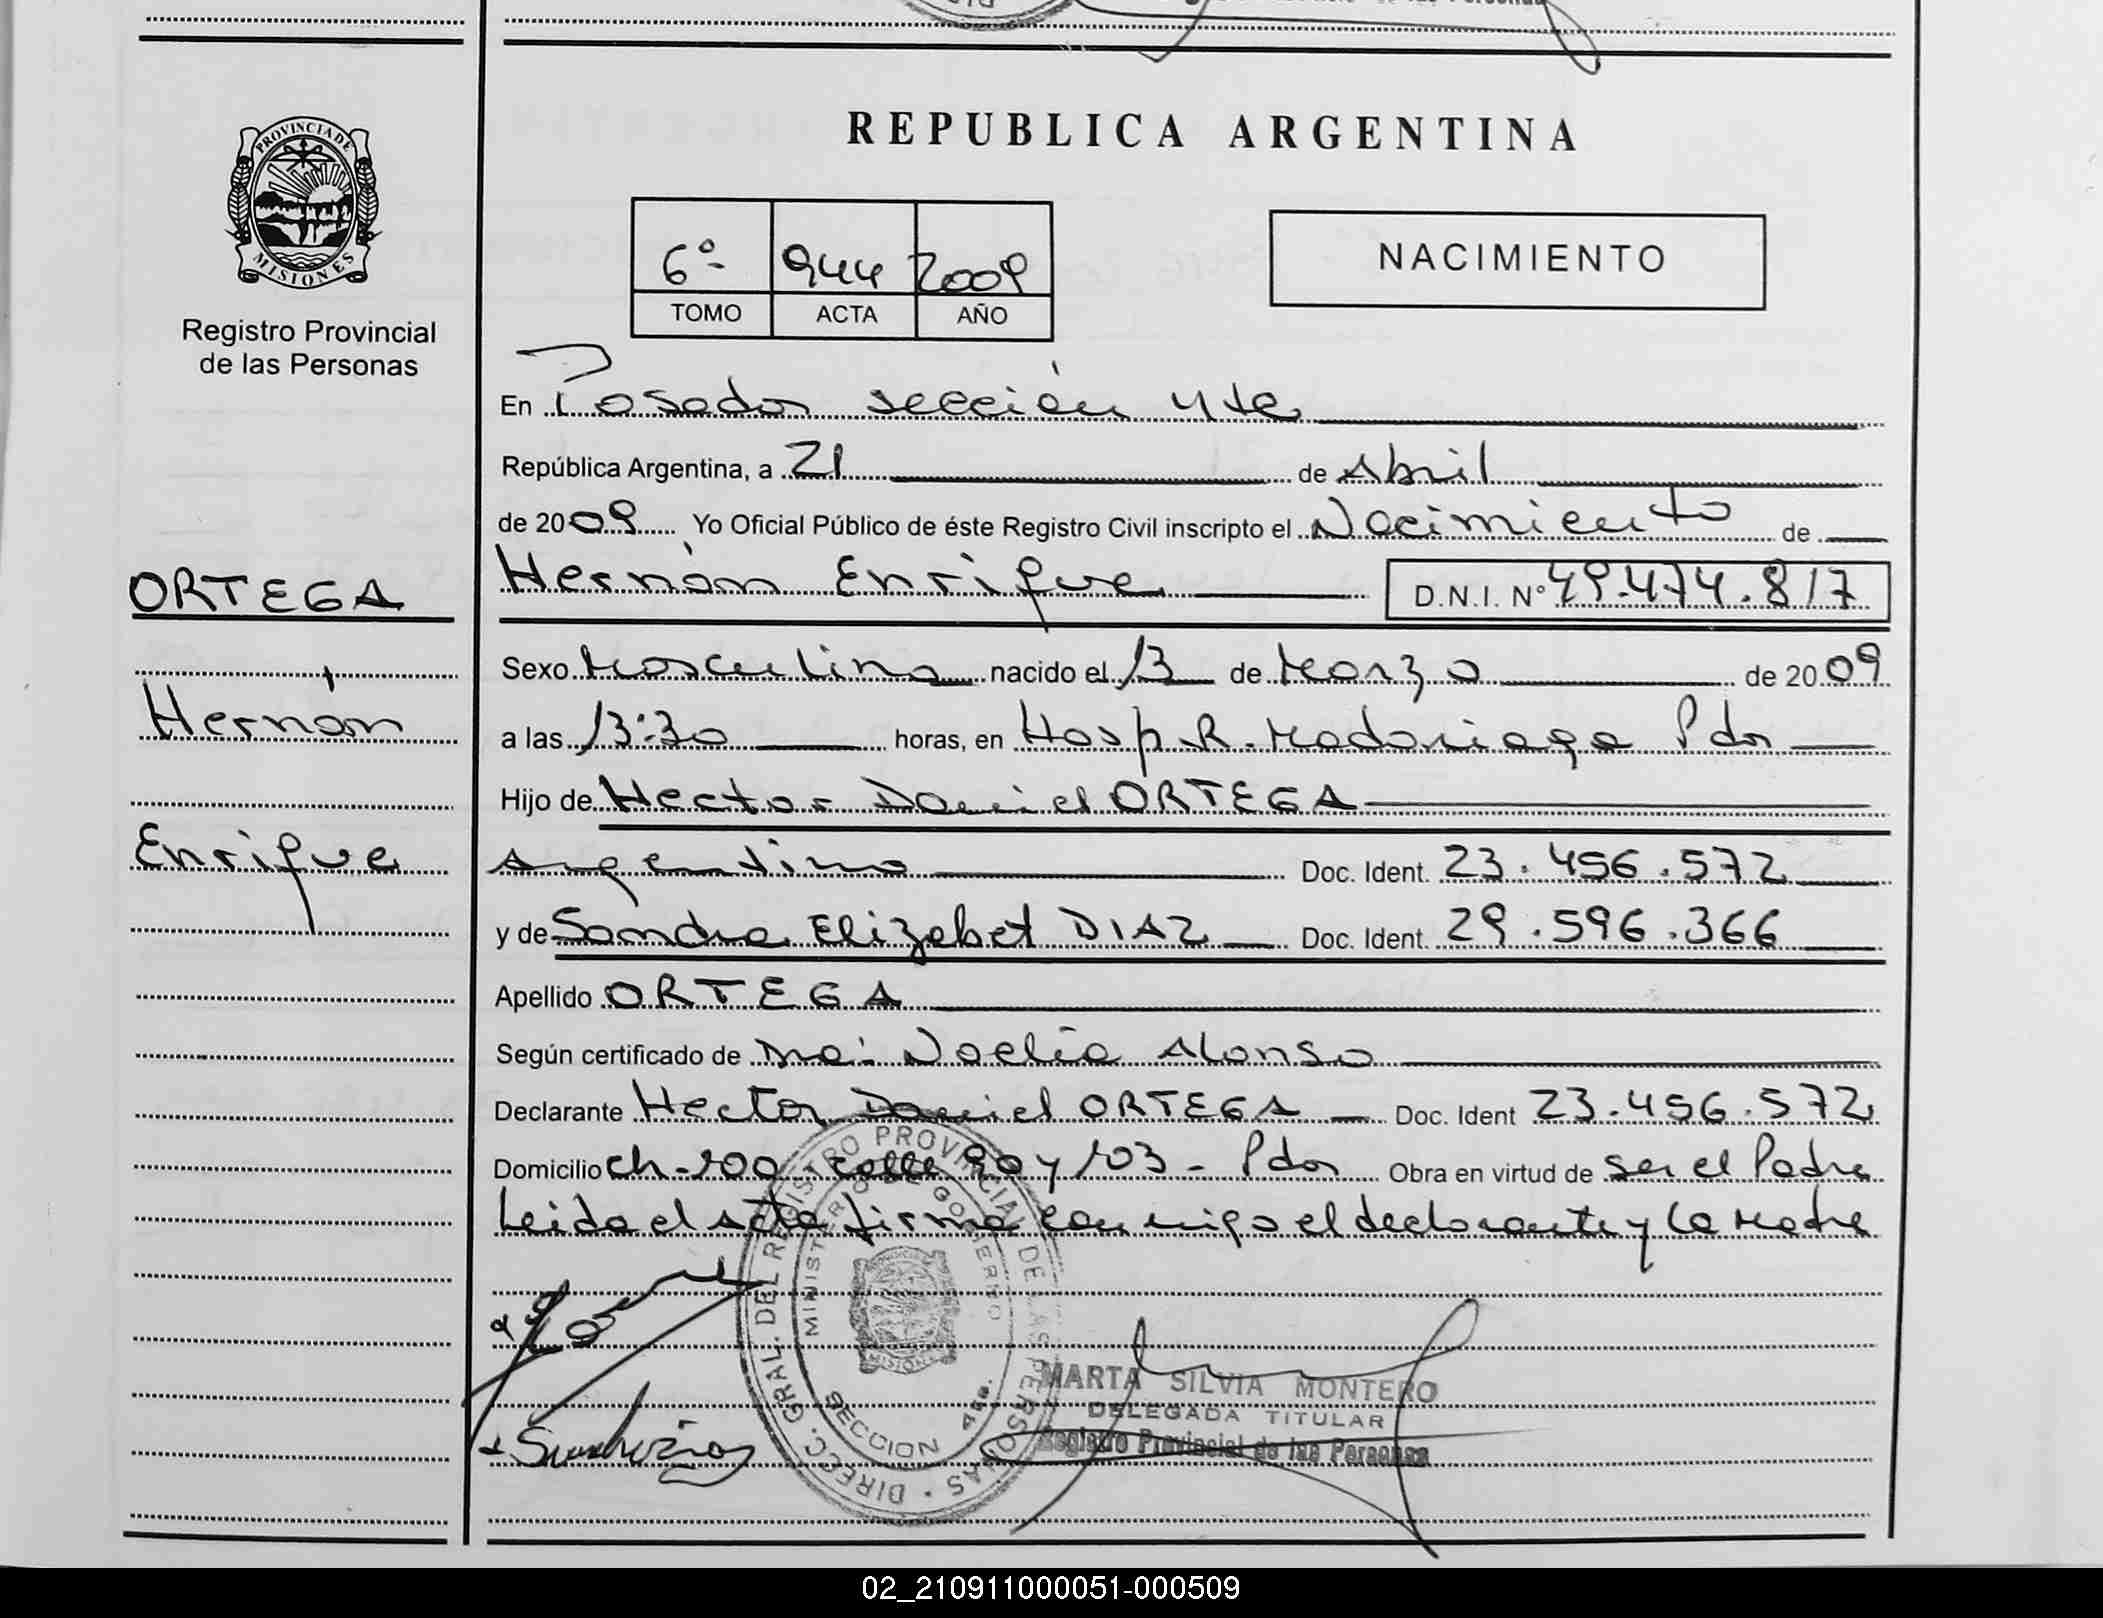 REPUBLICA ARGENTINA
PROVINCIA DE
MISIONES
Registro Provincial
de las Personas
6º- 944 2009
TOMO ACTA AÑO
NACIMIENTO
En Posadas sección 4ta
República Argentina, a 21 de Abril
de 2009 Yo Oficial Público de éste Registro Civil inscripto el Nacimiento de
ORTEGA
Hernán Enrique D.N.I. Nº 49.474.817
Sexo Masculino nacido el 13 de Marzo de 2009
Hernán
a las 13:30 horas, en Hosp. R. Madariaga Pdas
Hijo de Hector Daniel ORTEGA
Enrique
Argentino Doc. Ident. 23.456.572
y de Sandra Elizabet DIAZ Doc. Ident. 29.596.366
Apellido ORTEGA
Según certificado de Dra: Noelia Alonso
Declarante Hector Daniel ORTEGA Doc. Ident 23.456.572
Domicilio ch-109 calle 90 y 103 - Pdas Obra en virtud de ser el Padre
Leida el acta firma conmigo el declarante y la Madre
DIREC. GRAL. DEL REGISTRO PROVINCIAL DE LAS PERSONAS
MINISTERIO DE GOBIERNO
MISIONES
SECCION 4ta.
MARTA SILVIA MONTERO
DELEGADA TITULAR
Registro Provincial de las Personas
02_210911000051-000509